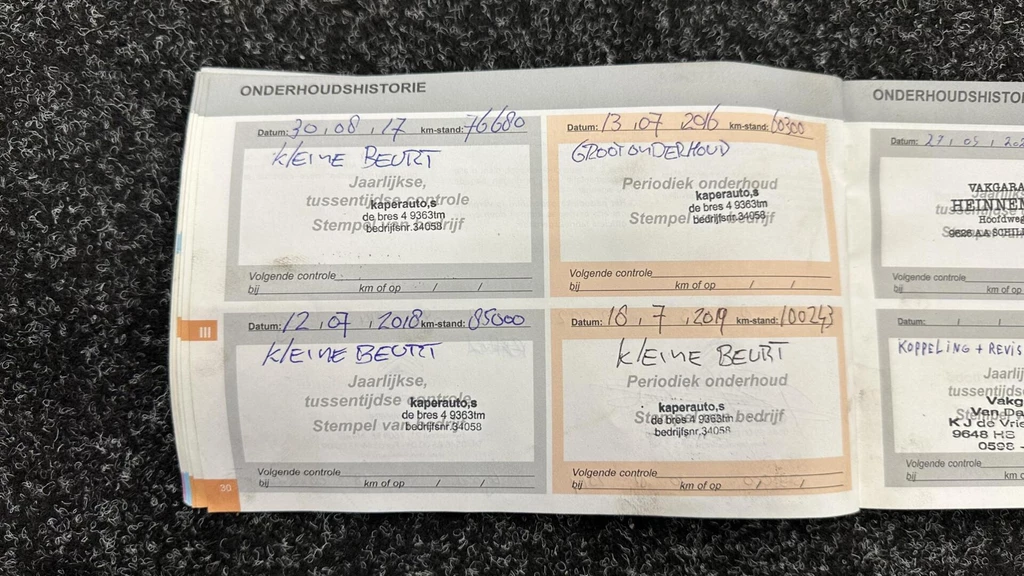 ONDERHOUDSHISTORIE
Datum: 30,08,17 km-stand: 76680
KLEINE BEURT
Jaarlijkse,
tussentijdse controle
Stempel van bedrijf
kaperauto,s
de bres 4 9363tm
bedrijfsnr.34058
Volgende controle
bij km of op / /
Datum: 13,07 2016 km-stand: 60300
GROOT ONDERHOUD
Periodiek onderhoud
Stempel van bedrijf
kaperauto,s
de bres 4 9363tm
bedrijfsnr.34058
Volgende controle
bij km of op / /
III
Datum: 12,07,2018 km-stand: 85000
KLEINE BEURT
Jaarlijkse,
tussentijdse controle
Stempel van bedrijf
kaperauto,s
de bres 4 9363tm
bedrijfsnr.34058
Volgende controle
bij km of op / /
Datum: 18,7,2019 km-stand: 100243
KLEINE BEURT
Periodiek onderhoud
Stempel van bedrijf
kaperauto,s
de bres 4 9363tm
bedrijfsnr.34058
Volgende controle
bij km of op / /
30
ONDERHOUDSHISTOR
Datum: 27,05,202
VAKGARA
HEINNEN
Hoofdweg
9626 AA SCHIL
Volgende controle
bij km of op
Datum: / /
KOPPELING + REVIS
Jaarlij
tussentijds
Vakg
Van Da
K J de Vrie
9648 HS
0598 -
Volgende controle
bij km o